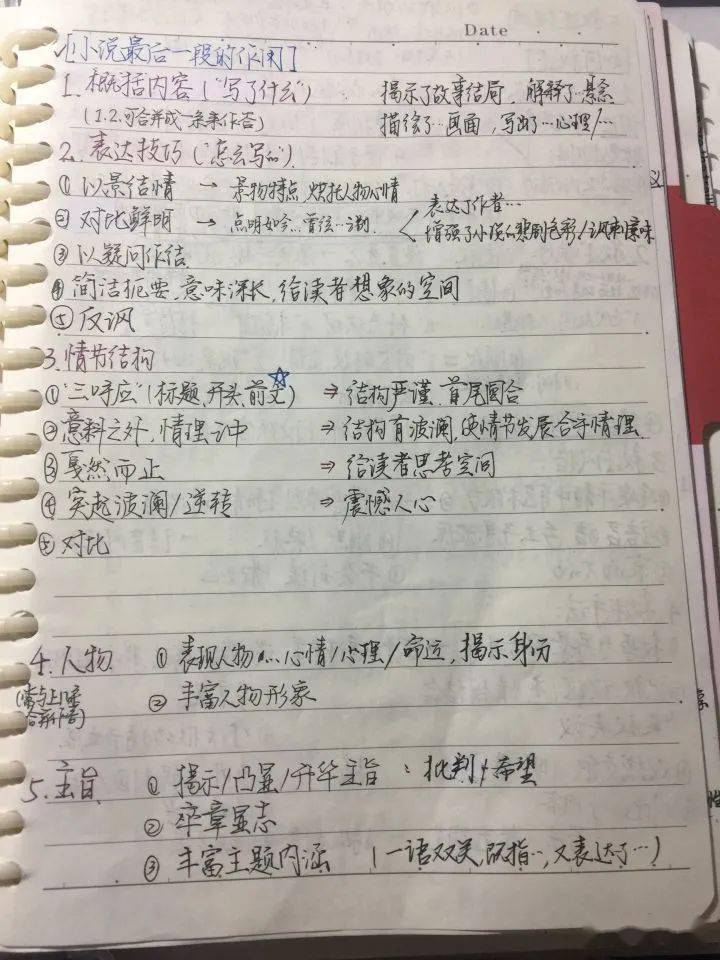 Date
[小说最后一段的作用]
1. 概括内容("写了什么") 揭示了故事结局, 解释了…悬念
(1.2.可合并成一条来作答) 描绘了…画面, 写出了…心理/…
2. 表达技巧("怎么写的")
① 以景结情 → 景物特点, 烘托人物心情
② 对比鲜明 → 点明如今…曾经… 表达了作者…
增强了小说的悲剧色彩/讽刺意味
③ 以疑问作结
④ 简洁扼要, 意味深长, 给读者想象的空间
⑤ 反讽
3. 情节结构
① "三呼应"(标题、开头、前文☆) ⇒ 结构严谨、首尾圆合
② 意料之外, 情理之中 ⇒ 结构有波澜, 使情节发展合乎情理
③ 戛然而止 ⇒ 给读者思考空间
④ 突起波澜/逆转 ⇒ 震憾人心
⑤ 对比
4. 人物 ① 表现人物…心情/心理/命运, 揭示身份
② 丰富人物形象
5. 主旨 ① 揭示/凸显/升华主旨: 批判+希望
② 卒章显志
③ 丰富主题内涵 (一语双关, 既指…, 又表达了…)